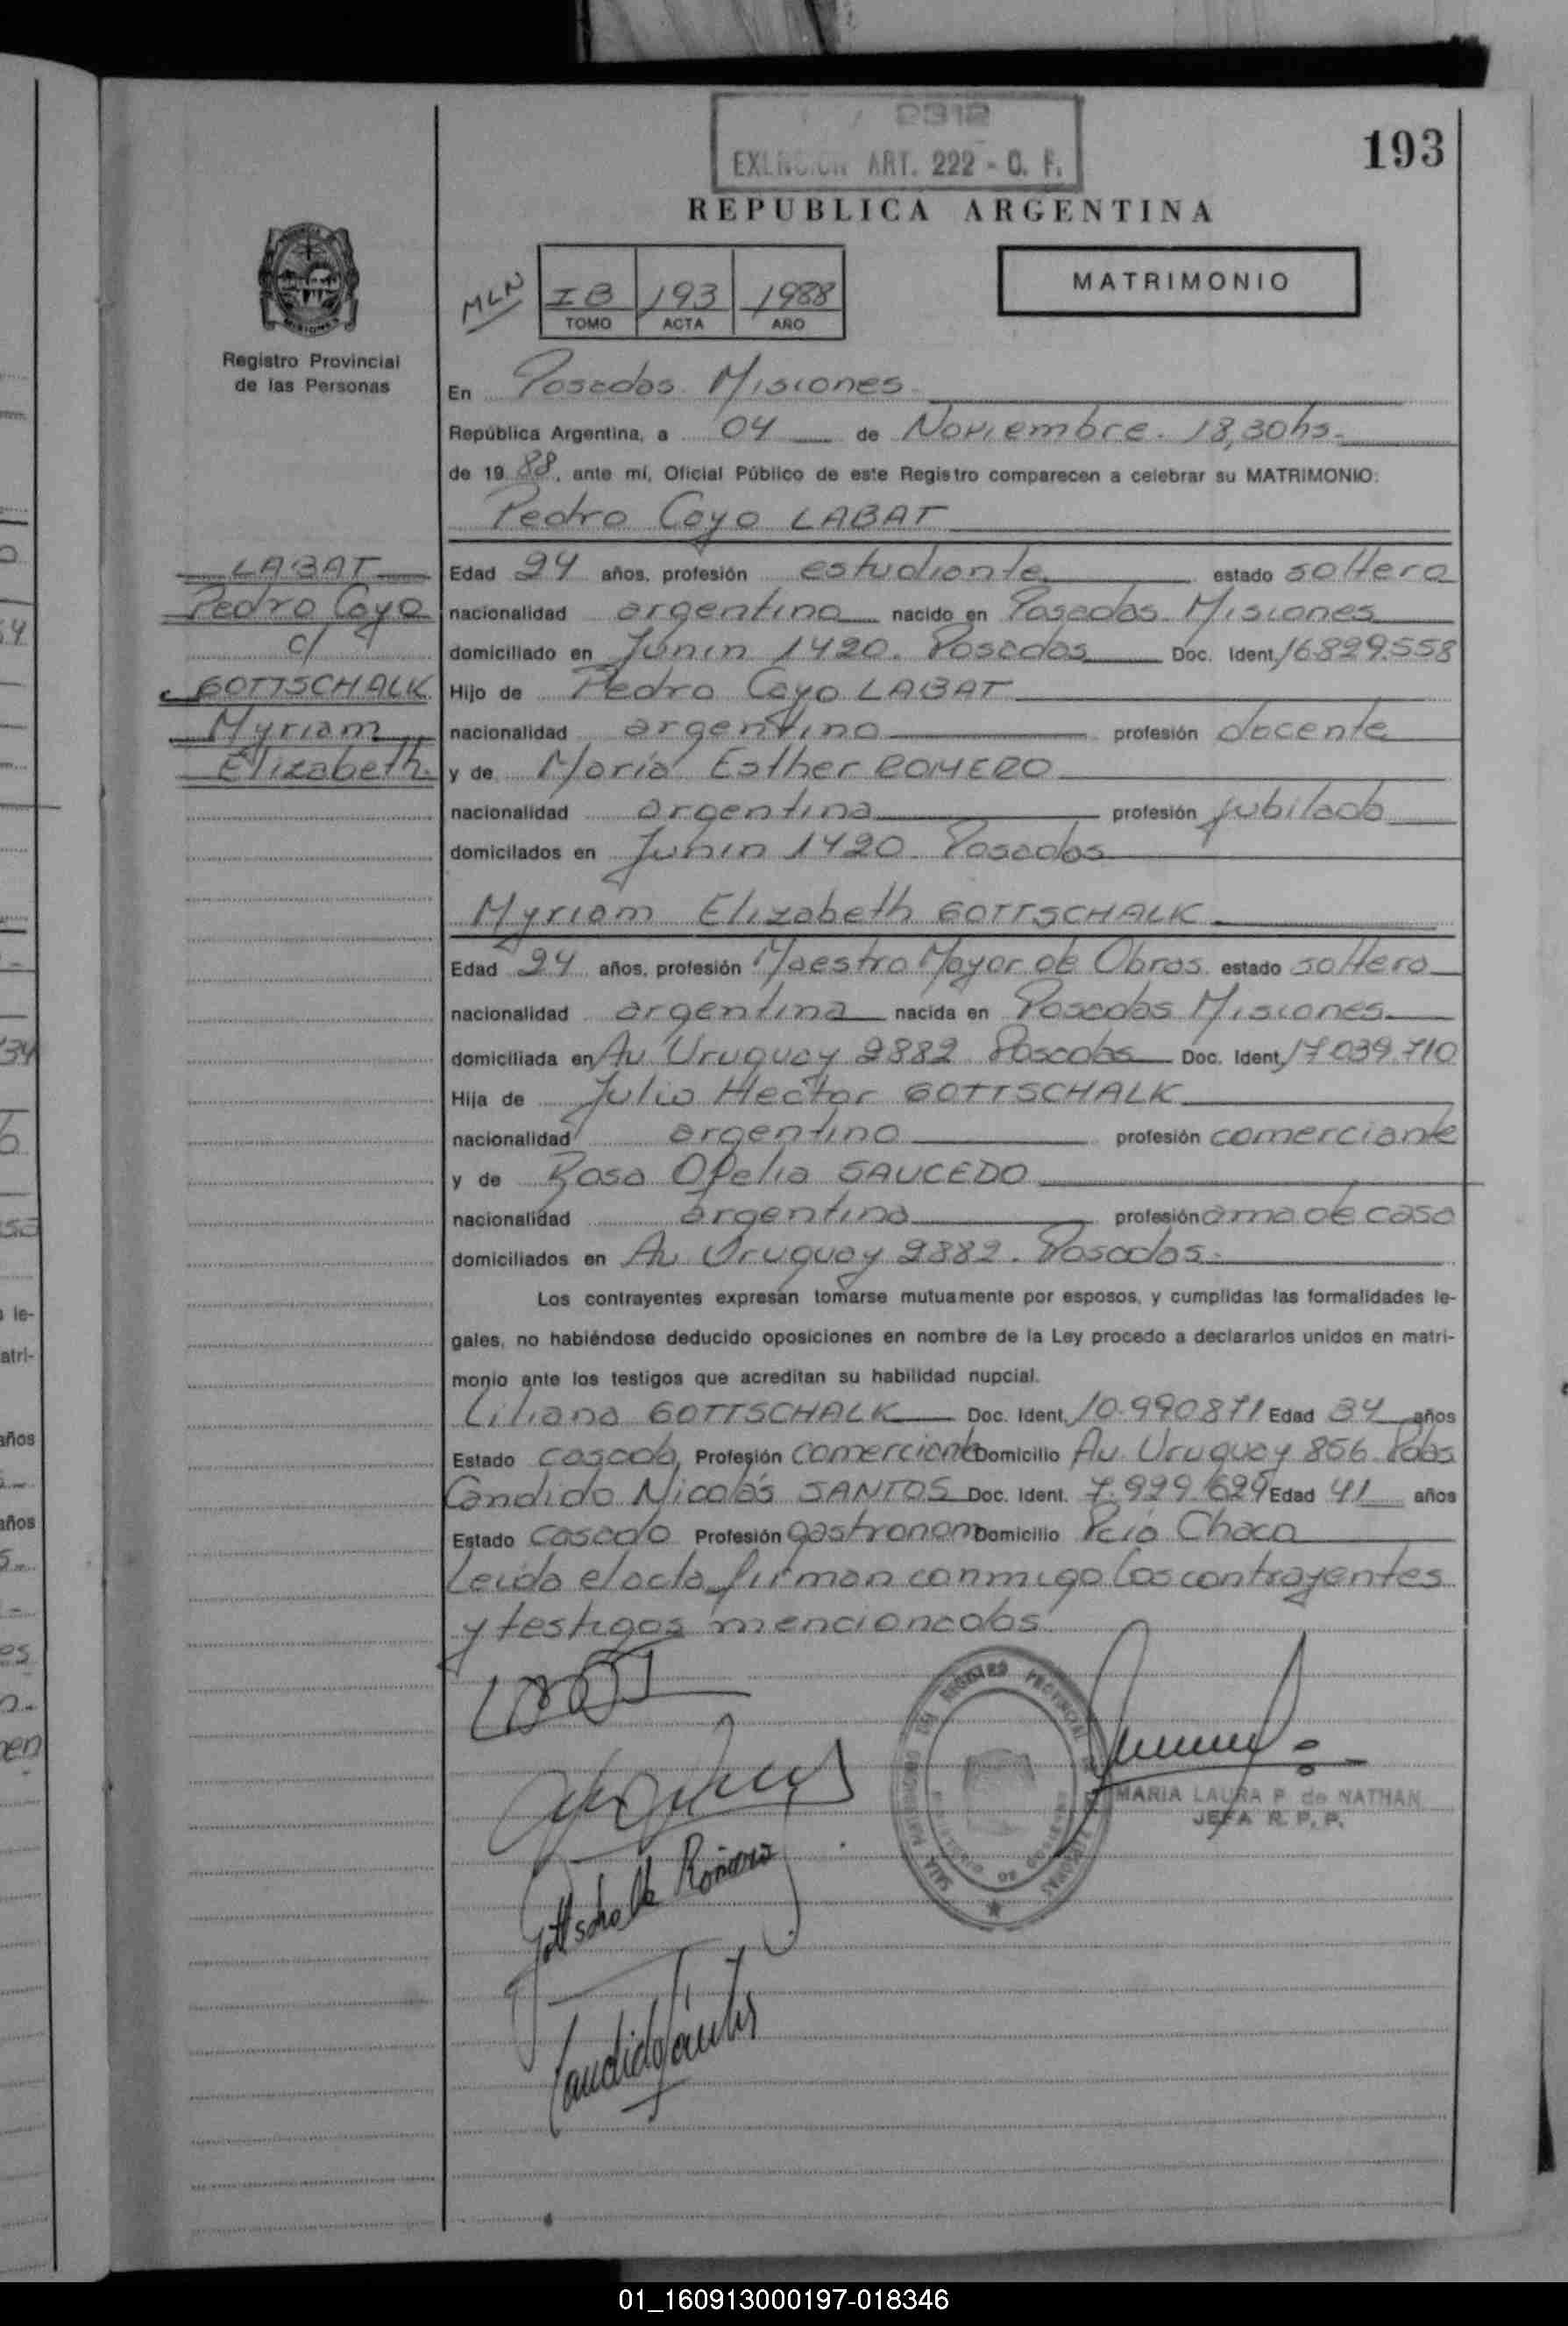 2312
EXENCION ART. 222 - C. F.
193
REPUBLICA ARGENTINA
MLN
I B 193 1988
TOMO ACTA AÑO
MATRIMONIO
MISIONES
Registro Provincial
de las Personas
En Posadas Misiones
República Argentina, a 04 de Noviembre. 18,30hs.
de 19 88, ante mí, Oficial Público de este Registro comparecen a celebrar su MATRIMONIO:
Pedro Cayo LABAT
LABAT
Pedro Cayo
c/
GOTTSCHALK
Myriam
Elizabeth.
Edad 24 años, profesión estudiante estado soltero
nacionalidad argentino nacido en Posadas Misiones
domiciliado en Junin 1420. Posadas Doc. Ident. 16.829.558
Hijo de Pedro Cayo LABAT
nacionalidad argentino profesión docente
y de María Esther ROMERO
nacionalidad argentina profesión jubilada
domicilados en Junin 1420 Posadas
Myriam Elizabeth GOTTSCHALK
Edad 24 años, profesión Maestro Mayor de Obras estado soltera
nacionalidad argentina nacida en Posadas Misiones
domiciliada en Av Uruguay 2882 Posadas Doc. Ident. 17.039.710
Hija de Julio Hector GOTTSCHALK
nacionalidad argentino profesión comerciante
y de Rosa Ofelia SAUCEDO
nacionalidad argentina profesión ama de casa
domiciliados en Av Uruguay 2882. Posadas.
Los contrayentes expresan tomarse mutuamente por esposos, y cumplidas las formalidades le-
gales, no habiéndose deducido oposiciones en nombre de la Ley procedo a declararlos unidos en matri-
monio ante los testigos que acreditan su habilidad nupcial.
Liliana GOTTSCHALK Doc. Ident. 10.990871 Edad 34 años
Estado casada, Profesión comerciante Domicilio Av. Uruguay 856 Pdas
Candido Nicolás SANTOS Doc. Ident. 7.929.629 Edad 41 años
Estado casado Profesión gastronom Domicilio Pcia Chaco
Leida el acta firman conmigo los contrayentes
y testigos mencionados.
MARIA LAURA P. de NATHAN
JEFA R. P. P.
Gottschalk
Candido Santos
01_160913000197-018346